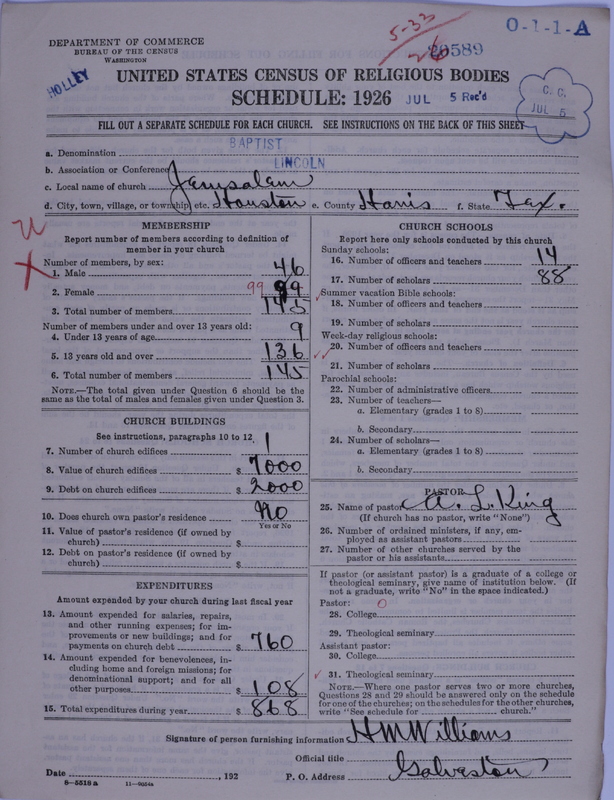 5-33
26
O-1-1-A
DEPARTMENT OF COMMERCE
BUREAU OF THE CENSUS
WASHINGTON
20589
HOLLEY
UNITED STATES CENSUS OF RELIGIOUS BODIES
SCHEDULE: 1926
JUL 5 Rec'd
C. C.
JUL 5
FILL OUT A SEPARATE SCHEDULE FOR EACH CHURCH. SEE INSTRUCTIONS ON THE BACK OF THIS SHEET
a. Denomination BAPTIST
b. Association or Conference LINCOLN
c. Local name of church Jerusalem
d. City, town, village, or township, etc. Houston e. County Harris f. State Tex.
MEMBERSHIP
Report number of members according to definition of
member in your church
Number of members, by sex:
X
1. Male 46
2. Female 99 99
3. Total number of members 145
Number of members under and over 13 years old:
4. Under 13 years of age 9
5. 13 years old and over 136
6. Total number of members 145
NOTE.—The total given under Question 6 should be the
same as the total of males and females given under Question 3.
CHURCH BUILDINGS
See instructions, paragraphs 10 to 12.
7. Number of church edifices 1
8. Value of church edifices $ 7000
9. Debt on church edifices $ 2000
10. Does church own pastor's residence No
Yes or No
11. Value of pastor's residence (if owned by
church) $
12. Debt on pastor's residence (if owned by
church) $
EXPENDITURES
Amount expended by your church during last fiscal year
13. Amount expended for salaries, repairs,
and other running expenses; for im-
provements or new buildings; and for
payments on church debt $ 760
14. Amount expended for benevolences, in-
cluding home and foreign missions; for
denominational support; and for all
other purposes $ 108
15. Total expenditures during year $ 868
CHURCH SCHOOLS
Report here only schools conducted by this church
Sunday schools:
16. Number of officers and teachers 14
17. Number of scholars 88
Summer vacation Bible schools:
18. Number of officers and teachers
19. Number of scholars
Week-day religious schools:
20. Number of officers and teachers
21. Number of scholars
Parochial schools:
22. Number of administrative officers
23. Number of teachers—
a. Elementary (grades 1 to 8)
b. Secondary
24. Number of scholars—
a. Elementary (grades 1 to 8)
b. Secondary
PASTOR
25. Name of pastor A. L. King
(If church has no pastor, write "None")
26. Number of ordained ministers, if any, em-
ployed as assistant pastors
27. Number of other churches served by the
pastor or his assistants
If pastor (or assistant pastor) is a graduate of a college or
theological seminary, give name of institution below. (If
not a graduate, write "No" in the space indicated.)
Pastor: O
28. College
29. Theological seminary
Assistant pastor:
30. College
31. Theological seminary
NOTE.—Where one pastor serves two or more churches,
Questions 28 and 29 should be answered only on the schedule
for one of the churches; on the schedules for the other churches,
write "See schedule for church."
Signature of person furnishing information H M Williams
Official title
Date , 192 P. O. Address Galveston
8-5518a 11-9054a